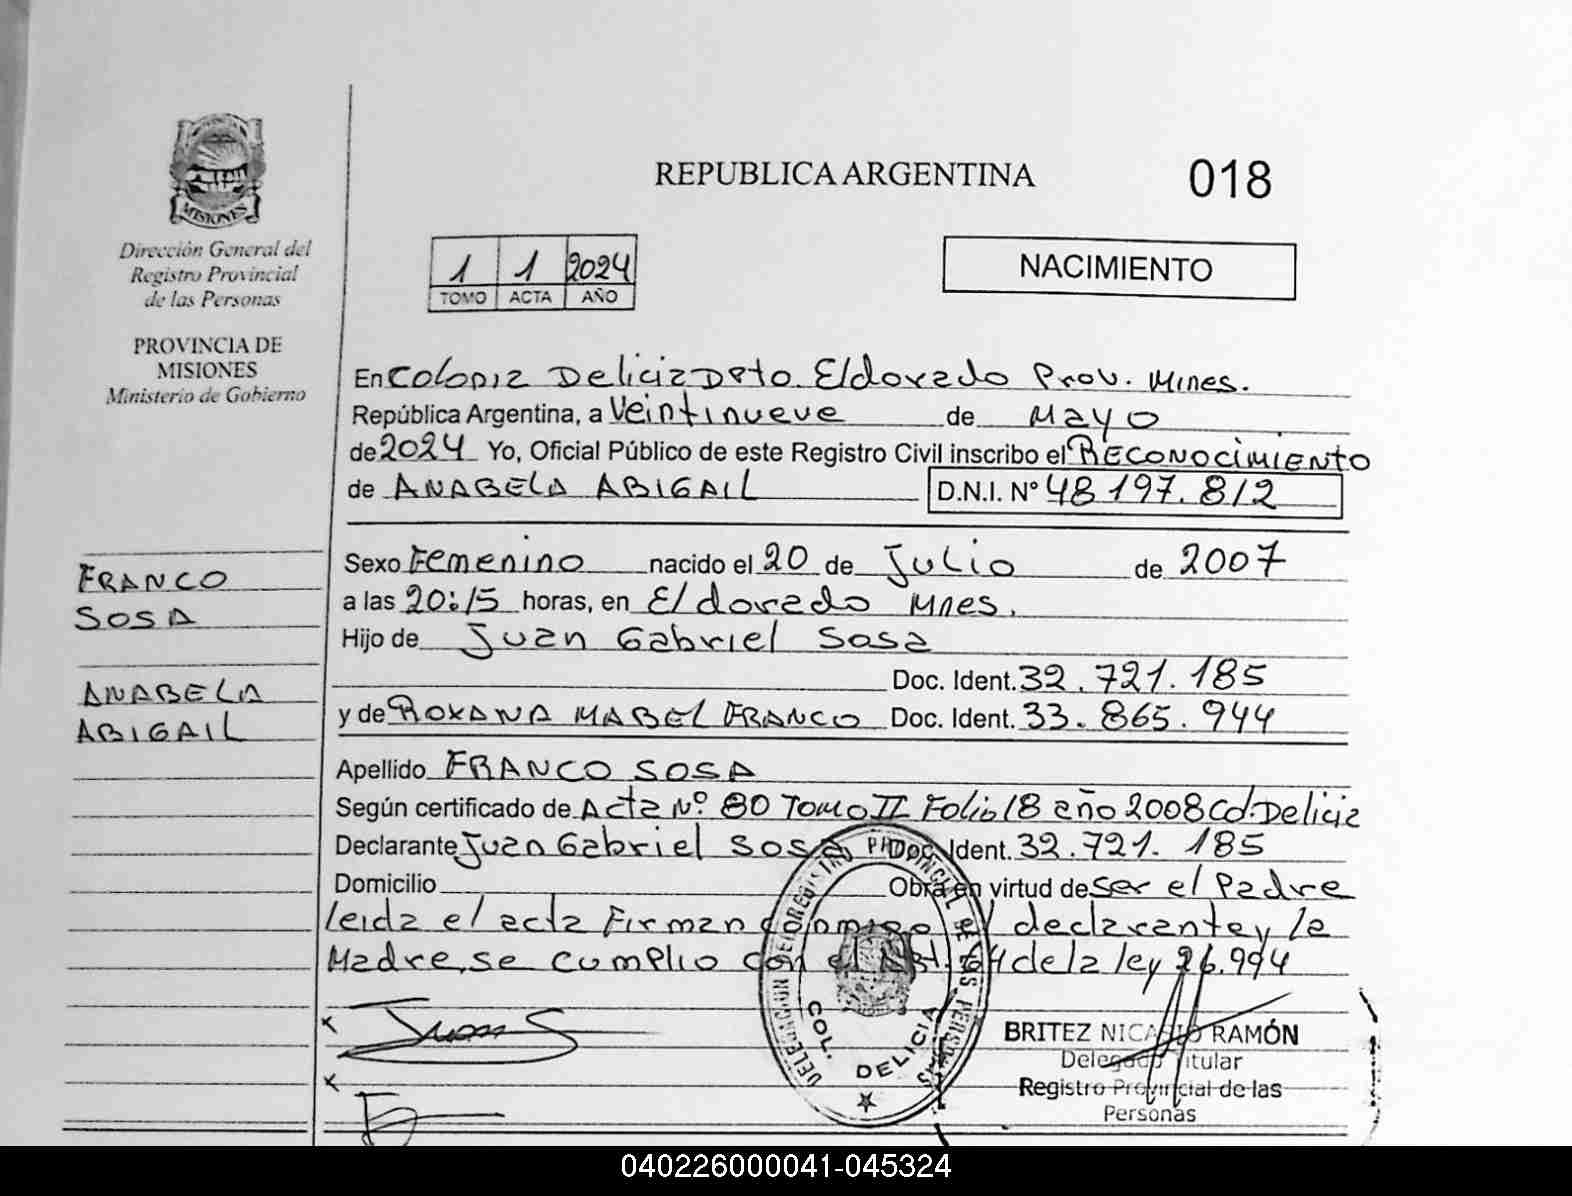 REPUBLICA ARGENTINA
018
PROVINCIA
MISIONES
Dirección General del
Registro Provincial
de las Personas
PROVINCIA DE
MISIONES
Ministerio de Gobierno
1 1 2024
TOMO ACTA AÑO
NACIMIENTO
En Colonia Delicia Dpto. Eldorado Prov. Mnes.
República Argentina, a Veintinueve de Mayo
de 2024 Yo, Oficial Público de este Registro Civil inscribo el RECONOCIMIENTO
de ANABELA ABIGAIL D.N.I. N° 48 197.812
FRANCO
SOSA
ANABELA
ABIGAIL
Sexo Femenino nacido el 20 de Julio de 2007
a las 20:15 horas, en Eldorado Mnes.
Hijo de Juan Gabriel Sosa
Doc. Ident. 32.721.185
y de ROXANA MABEL FRANCO Doc. Ident. 33.865.944
Apellido FRANCO SOSA
Según certificado de Acta N° 80 Tomo II Folio 18 año 2008 Col. Delicia
Declarante Juan Gabriel Sosa Doc. Ident. 32.721.185
Domicilio Obra en virtud de ser el Padre
leida el acta Firman conmigo el declarante y la
Madre, se cumplio con el Art. 64 de la ley 26.994
DELEGACION DEL REGISTRO PROVINCIAL DE LAS PERSONAS
COL. DELICIA
x Juan S
x
BRITEZ NICASIO RAMÓN
Delegado Titular
Registro Provincial de las
Personas
040226000041-045324